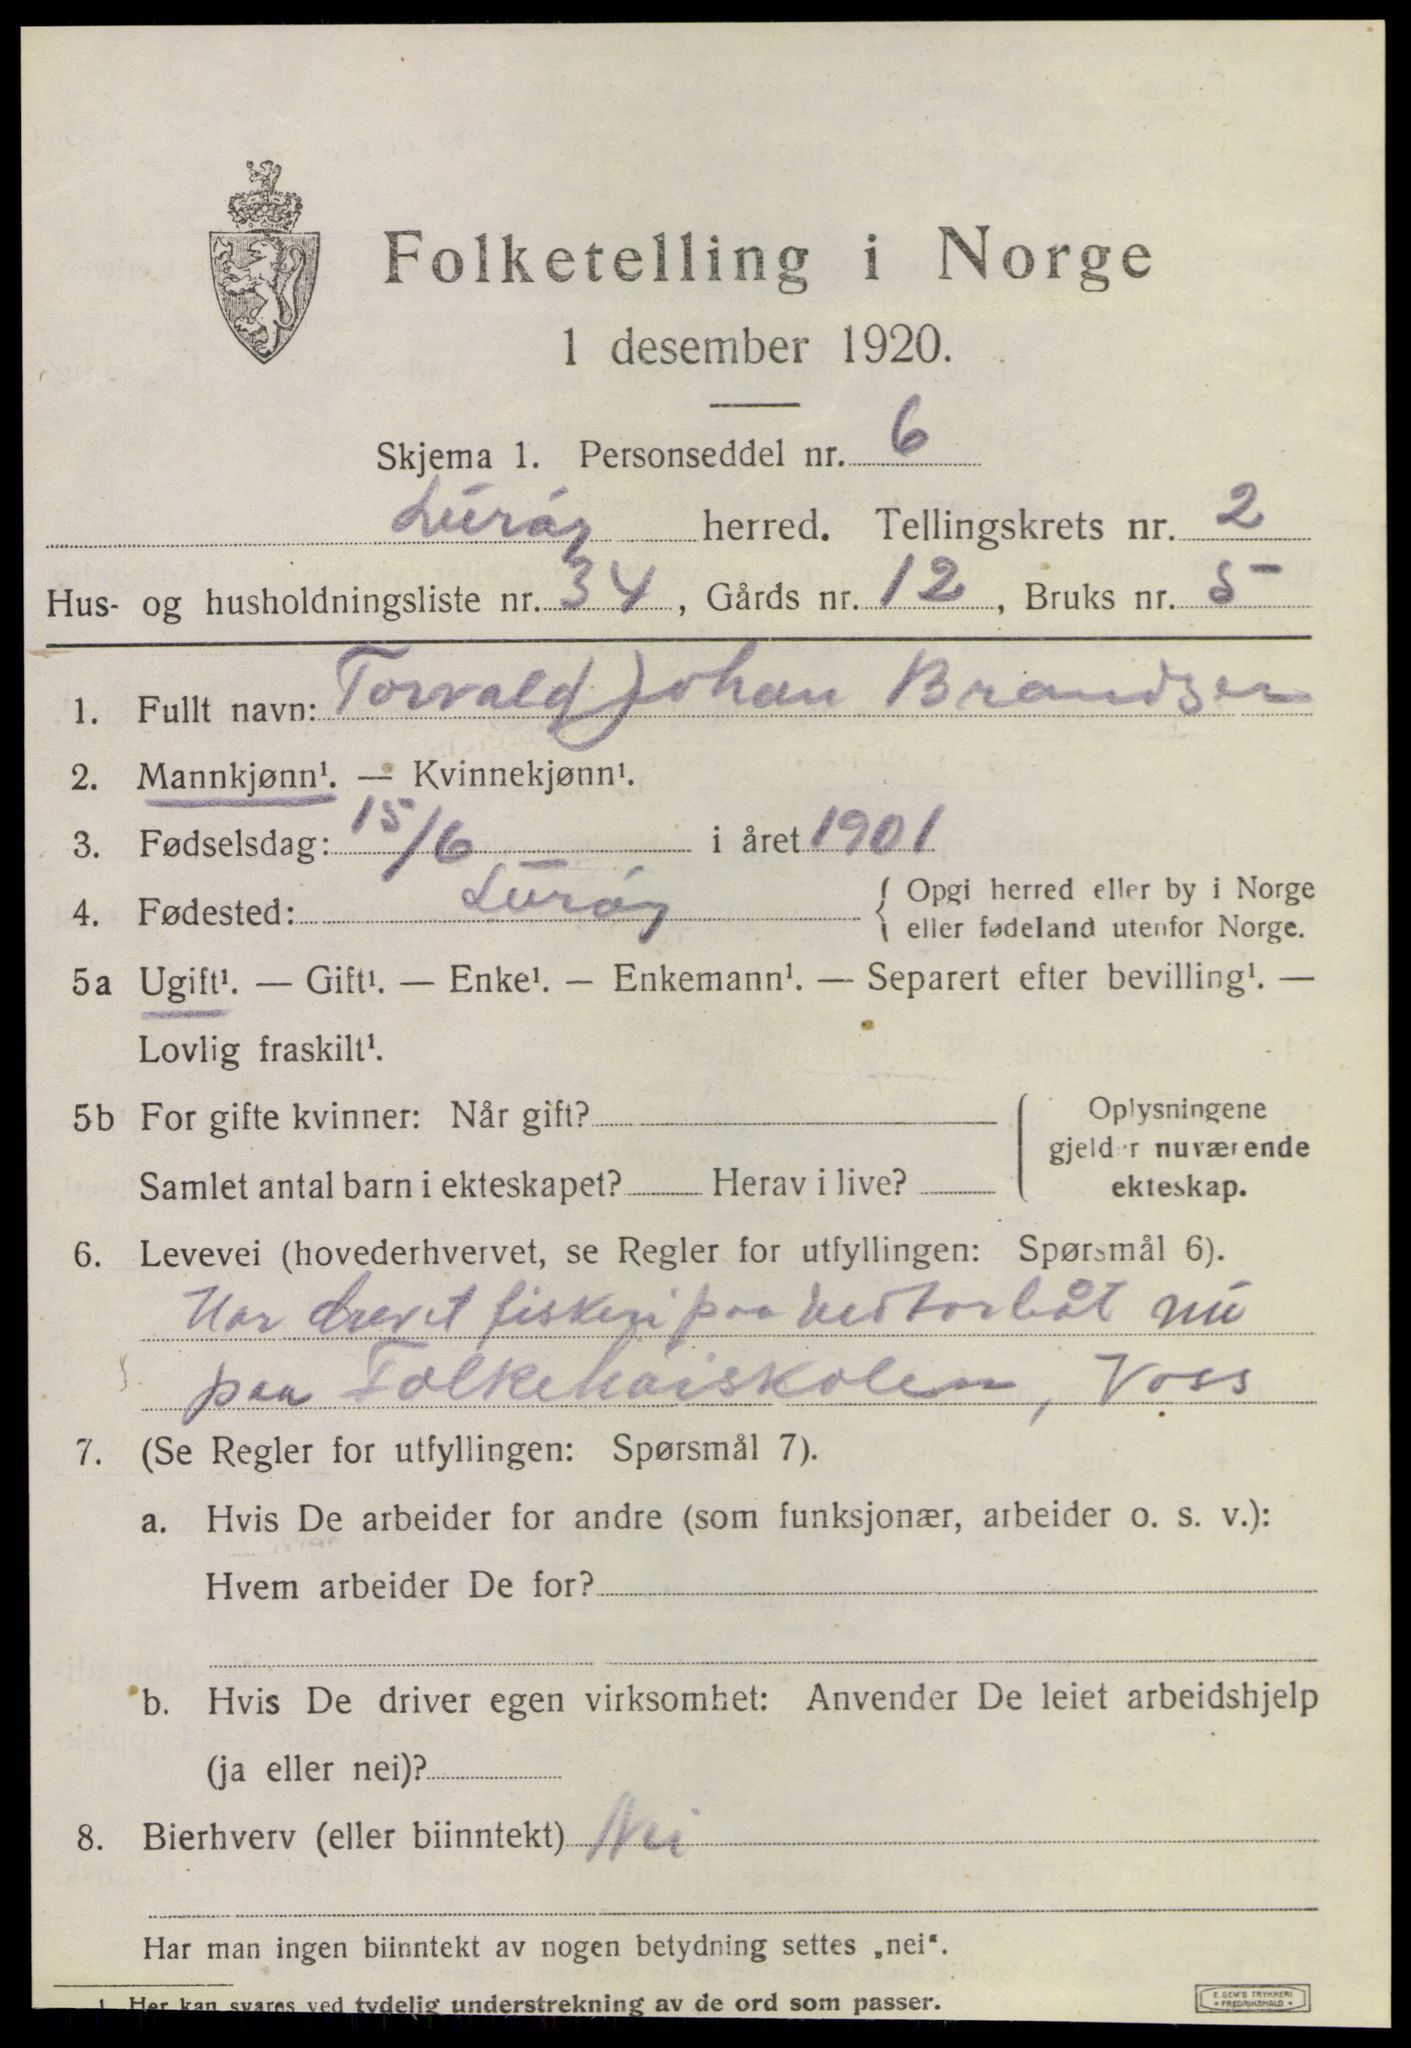 Folketelling i Norge
1 desember 1920.
Skjema 1. Personseddel nr. 6
Lurøy herred. Tellingskrets nr. 2
Hus- og husholdningsliste nr. 34, Gårds nr. 12, Bruks nr. 5
1. Fullt navn: Torvald Johan Brandser
2. Mannkjønn¹. — Kvinnekjønn¹.
3. Fødselsdag: 15/6 i året 1901
4. Fødested: Lurøy { Opgi herred eller by i Norge
eller fødeland utenfor Norge.
5a Ugift¹. — Gift¹. — Enke¹. — Enkemann¹. — Separert efter bevilling¹. —
Lovlig fraskilt¹.
5b For gifte kvinner: Når gift?
Samlet antal barn i ekteskapet? Herav i live?
Oplysningene
gjelder nuværende
ekteskap.
6. Levevei (hovederhvervet, se Regler for utfyllingen: Spørsmål 6).
Har drevet fiskeri paa motorbåt nu
paa Folkehøiskolen, Voss
7. (Se Regler for utfyllingen: Spørsmål 7).
a. Hvis De arbeider for andre (som funksjonær, arbeider o. s. v.):
Hvem arbeider De for?
b. Hvis De driver egen virksomhet: Anvender De leiet arbeidshjelp
(ja eller nei)?
8. Bierhverv (eller biinntekt) Nei
Har man ingen biinntekt av nogen betydning settes „nei“.
1 Her kan svares ved tydelig understrekning av de ord som passer.
E. SEM'S TRYKKERI
• FREDRIKSHALD •